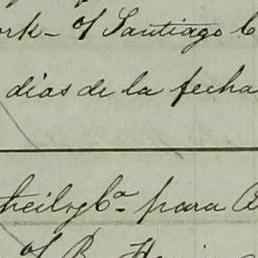 ork - of Santiago C
dias de la fecha
heil y Ca para
of